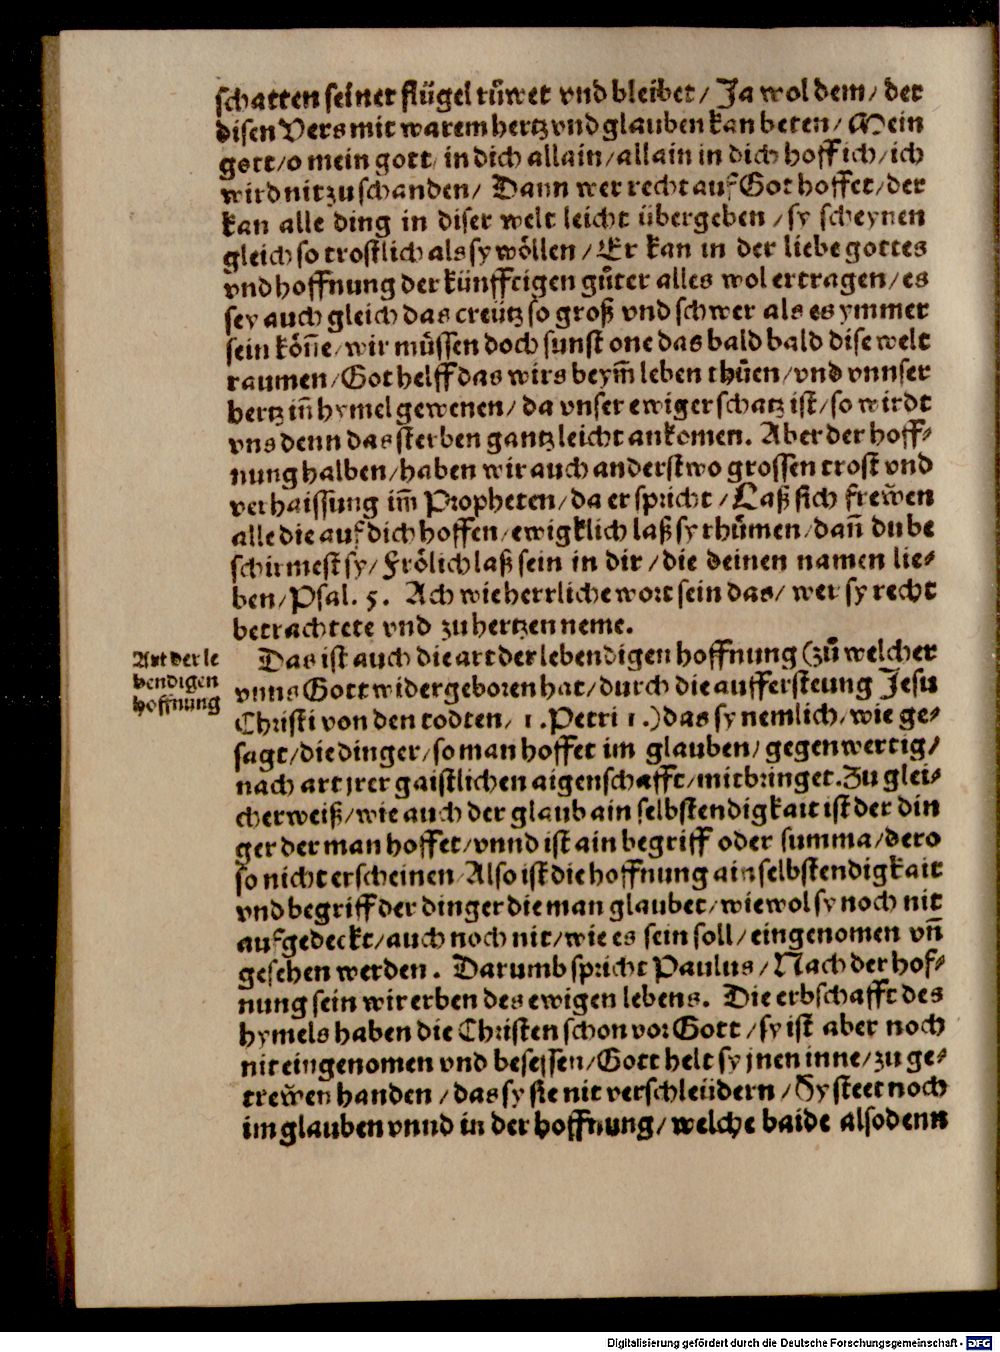 schatten seiner flügel růwet vnd bleibet / Ja wol dem / der
disen Vers mit warem hertz vnd glauben kan beten / Mein
gott / o mein gott / in dich allain / allain in dich hoff ich / ich
wird nit zu schanden / Dann wer recht auf Got hoffet / der
kan alle ding in diser welt leicht übergeben / sy scheynen
gleich so trostlich als sy wöllen / Er kan in der liebe gottes
vnd hoffnung der künfftigen gůter alles wol ertragen / es
sey auch gleich das creütz so groß vnd schwer als es ymmer
sein köñe / wir müssen doch sunst one das bald bald dise welt
raumen / Got helff das wirs beym̃ leben thůen / vnd vnnser
hertz iñ hymel gewenen / da vnser ewiger schatz ist / so wirdt
vns denn das sterben gantz leicht ankomen. Aber der hoff⸗
nung halben / haben wir auch anderstwo grossen trost vnd
verhaissung im̃ Propheten / da er spricht / Laß sich frewen
alle die auf dich hoffen / ewigklich laß sy rhůmen / dañ du be
schirmest sy / Frölich laß sein in dir / die deinen namen lie⸗
ben / Psal. 5. Ach wie herrliche wort sein das / wer sy recht
betrachtete vnd zu hertzen neme.
Art der le
bendigen
hoffnung
Das ist auch die art der lebendigen hoffnung (zů welcher
vnns Gott widergeboren hat / durch die auffersteung Jesu
Christi von den todten / 1. Petri 1.) das sy nemlich / wie ge⸗
sagt / die dinger / so man hoffet im glauben / gegenwertig /
nach art jrer gaistlichen aigenschafft / mitbringet. Zu glei⸗
cherweiß / wie auch der glaub ain selbstendigkait ist der din
ger der man hoffet / vnnd ist ain begriff oder summa / dero
so nicht erscheinen / Also ist die hoffnung ain selbstendigkait
vnd begriff der dinger die man glaubet / wiewol sy noch nit
aufgedeckt / auch noch nit / wie es sein soll / eingenomen vñ
gesehen werden. Darumb spricht Paulus / Nach der hof⸗
nung sein wir erben des ewigen lebens. Die erbschafft des
hymels haben die Christen schon vor Gott / sy ist aber noch
nit eingenomen vnd besessen / Gott helt sy jnen inne / zu ge⸗
trewen handen / das sy sie nit verschleüdern / Sy steet noch
im glauben vnnd in der hoffnung / welche baide alsodenn
Digitalisierung gefördert durch die Deutsche Forschungsgemeinschaft - DFG